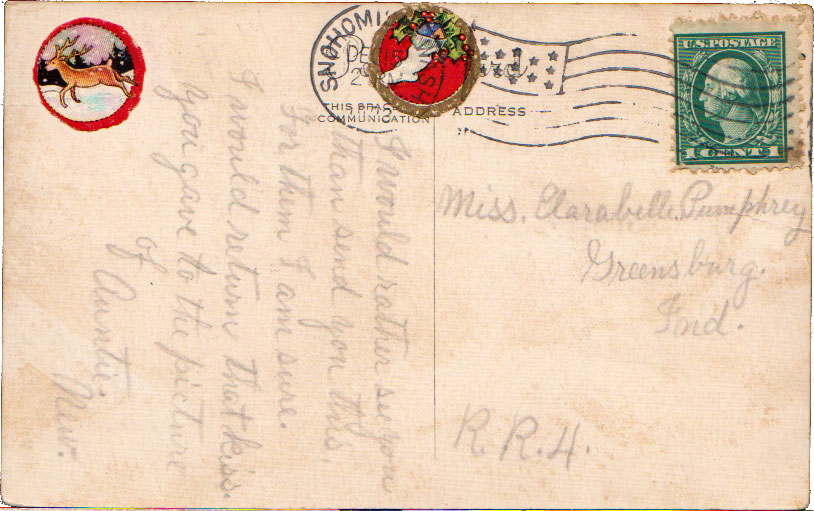 SNOHOMISH
DEC
THIS SPACE
COMMUNICATION
ADDRESS
U.S. POSTAGE
1 CENT 1
I would rather see you
than send you this,
For them I am sure.
I would return that kiss.
You gave to the picture
of
Auntie.
Miss. Clarabelle Pumphrey
Greensburg.
Ind.
R.R.4.